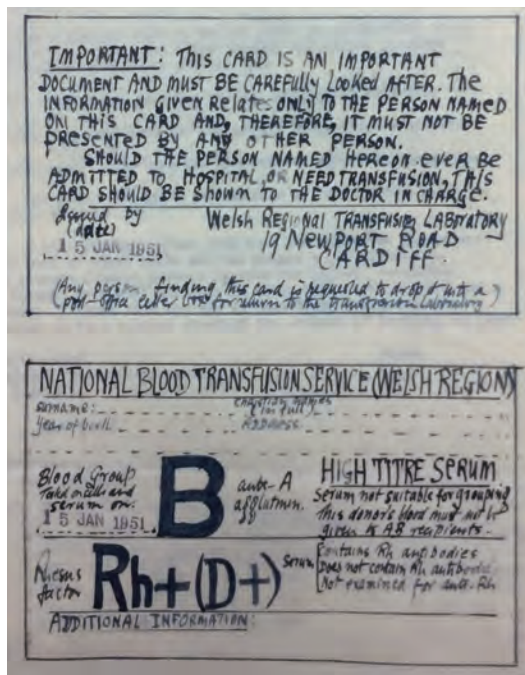 IMPORTANT: THIS CARD IS AN IMPORTANT
DOCUMENT AND MUST BE CAREFULLY LOOKED AFTER. THE
INFORMATION GIVEN RELATES ONLY TO THE PERSON NAMED
ON THIS CARD AND, THEREFORE, IT MUST NOT BE
PRESENTED BY ANY OTHER PERSON.
SHOULD THE PERSON NAMED HEREON EVER BE
ADMITTED TO HOSPITAL, OR NEED TRANSFUSION, THIS
CARD SHOULD BE SHOWN TO THE DOCTOR IN CHARGE.
Issued by Welsh Regional TRANSFUSION LABORATORY
(date) 19 NEWPORT ROAD
15 JAN 1951 CARDIFF.
(Any person finding this card is requested to drop it into a
post-office letter box for return to the transfusion laboratory)
NATIONAL BLOOD TRANSFUSION SERVICE (WELSH REGION)
surname: christian names (in full)
Year of birth ADDRESS
Blood Group B anti-A HIGH TITRE SERUM
Serum not suitable for grouping
serum on: agglutinin. This donor's blood must not be
15 JAN 1951 given to AB recipients.
Rhesus factor Rh+(D+) Serum Contains Rh antibodies
Does not contain Rh antibodies
Not examined for anti-Rh
ADDITIONAL INFORMATION: